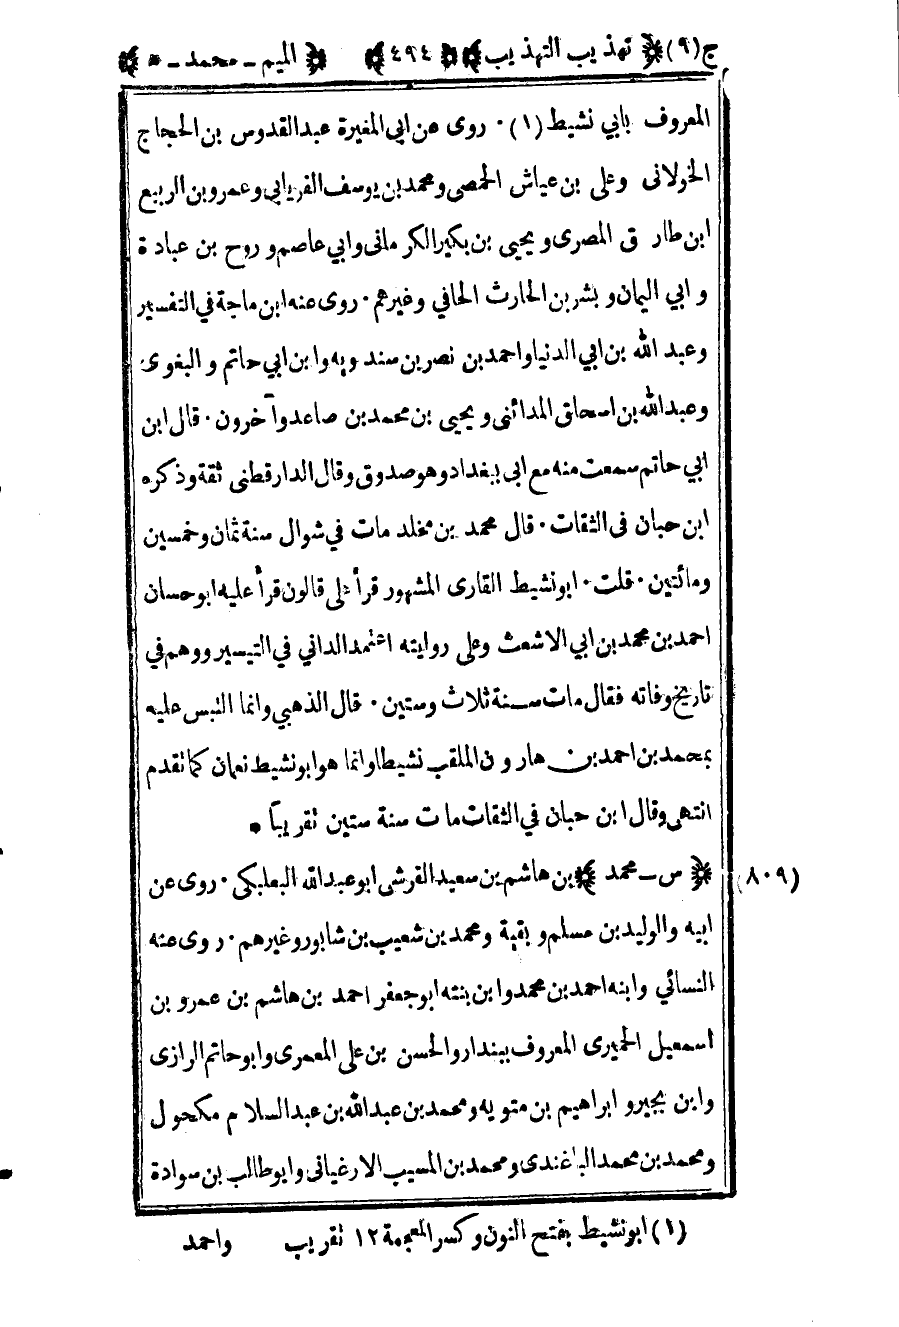 ج(٩) تهذيب التهذيب ٤٩٤ الميم ـ محمد ـ *
المعروف بابي نشيط (١) ٠ روى عن ابي المغيرة عبدالقدوس بن الحجاج
الخولانى وعلى بن عياش الحمصى ومحمد بن يوسف الفريابي وعمرو بن الربيع
ابن طارق المصرى ويحيى بن بكير الكرمانى وابي عاصم وروح بن عبادة
وابي اليمان وبشر بن الحارث الحافي وغيرهم ٠ روى عنه ابن ماجة في التفسير
وعبد الله بن ابي الدنيا واحمد بن نصر بن سندويه وابن ابي حاتم والبغوى
وعبدالله بن اسحاق المدائنى ويحيى بن محمد بن صاعد وآخرون ٠ قال ابن
ابي حاتم سمعت منه مع ابى ببغداد وهو صدوق وقال الدارقطنى ثقة وذكره
ابن حبان فى الثقات ٠ قال محمد بن مخلد مات في شوال سنة ثمان وخمسين
ومائتين ٠ قلت ٠ ابونشيط القارى المشهور قرأ على قالون قرأ عليه ابوحسان
احمد بن محمد بن ابي الاشعث وعلى روايته اعتمد الداني في التيسير ووهم في
تاريخ وفاته فقال مات سنة ثلاث وستين ٠ قال الذهبي وانما التبس عليه
بمحمد بن احمد بن هارون الملقب نشيطا وانما هو ابونشيط نعمان كما تقدم
انتهى وقال ابن حبان في الثقات مات سنة ستين تقريباً *
(٨٠٩) س ـ محمد بن هاشم بن سعيد القرشى ابوعبدالله البعلبكى ٠ روى عن
ابيه والوليد بن مسلم وبقية ومحمد بن شعيب بن شابور وغيرهم ٠ روى عنه
النسائي وابنه احمد بن محمد وابن بنته ابوجعفر احمد بن هاشم بن عمرو بن
اسمعيل الحميرى المعروف ببندار والحسن بن على المعمرى وابوحاتم الرازى
وابن بجير وابراهيم بن متويه ومحمد بن عبدالله بن عبدالسلام مكحول
ومحمد بن محمد الباغندى ومحمد بن المسيب الارغيانى وابوطالب بن سوادة
(١) ابونشيط بفتح النون وكسر المعجمة ١٢ تقريب واحمد